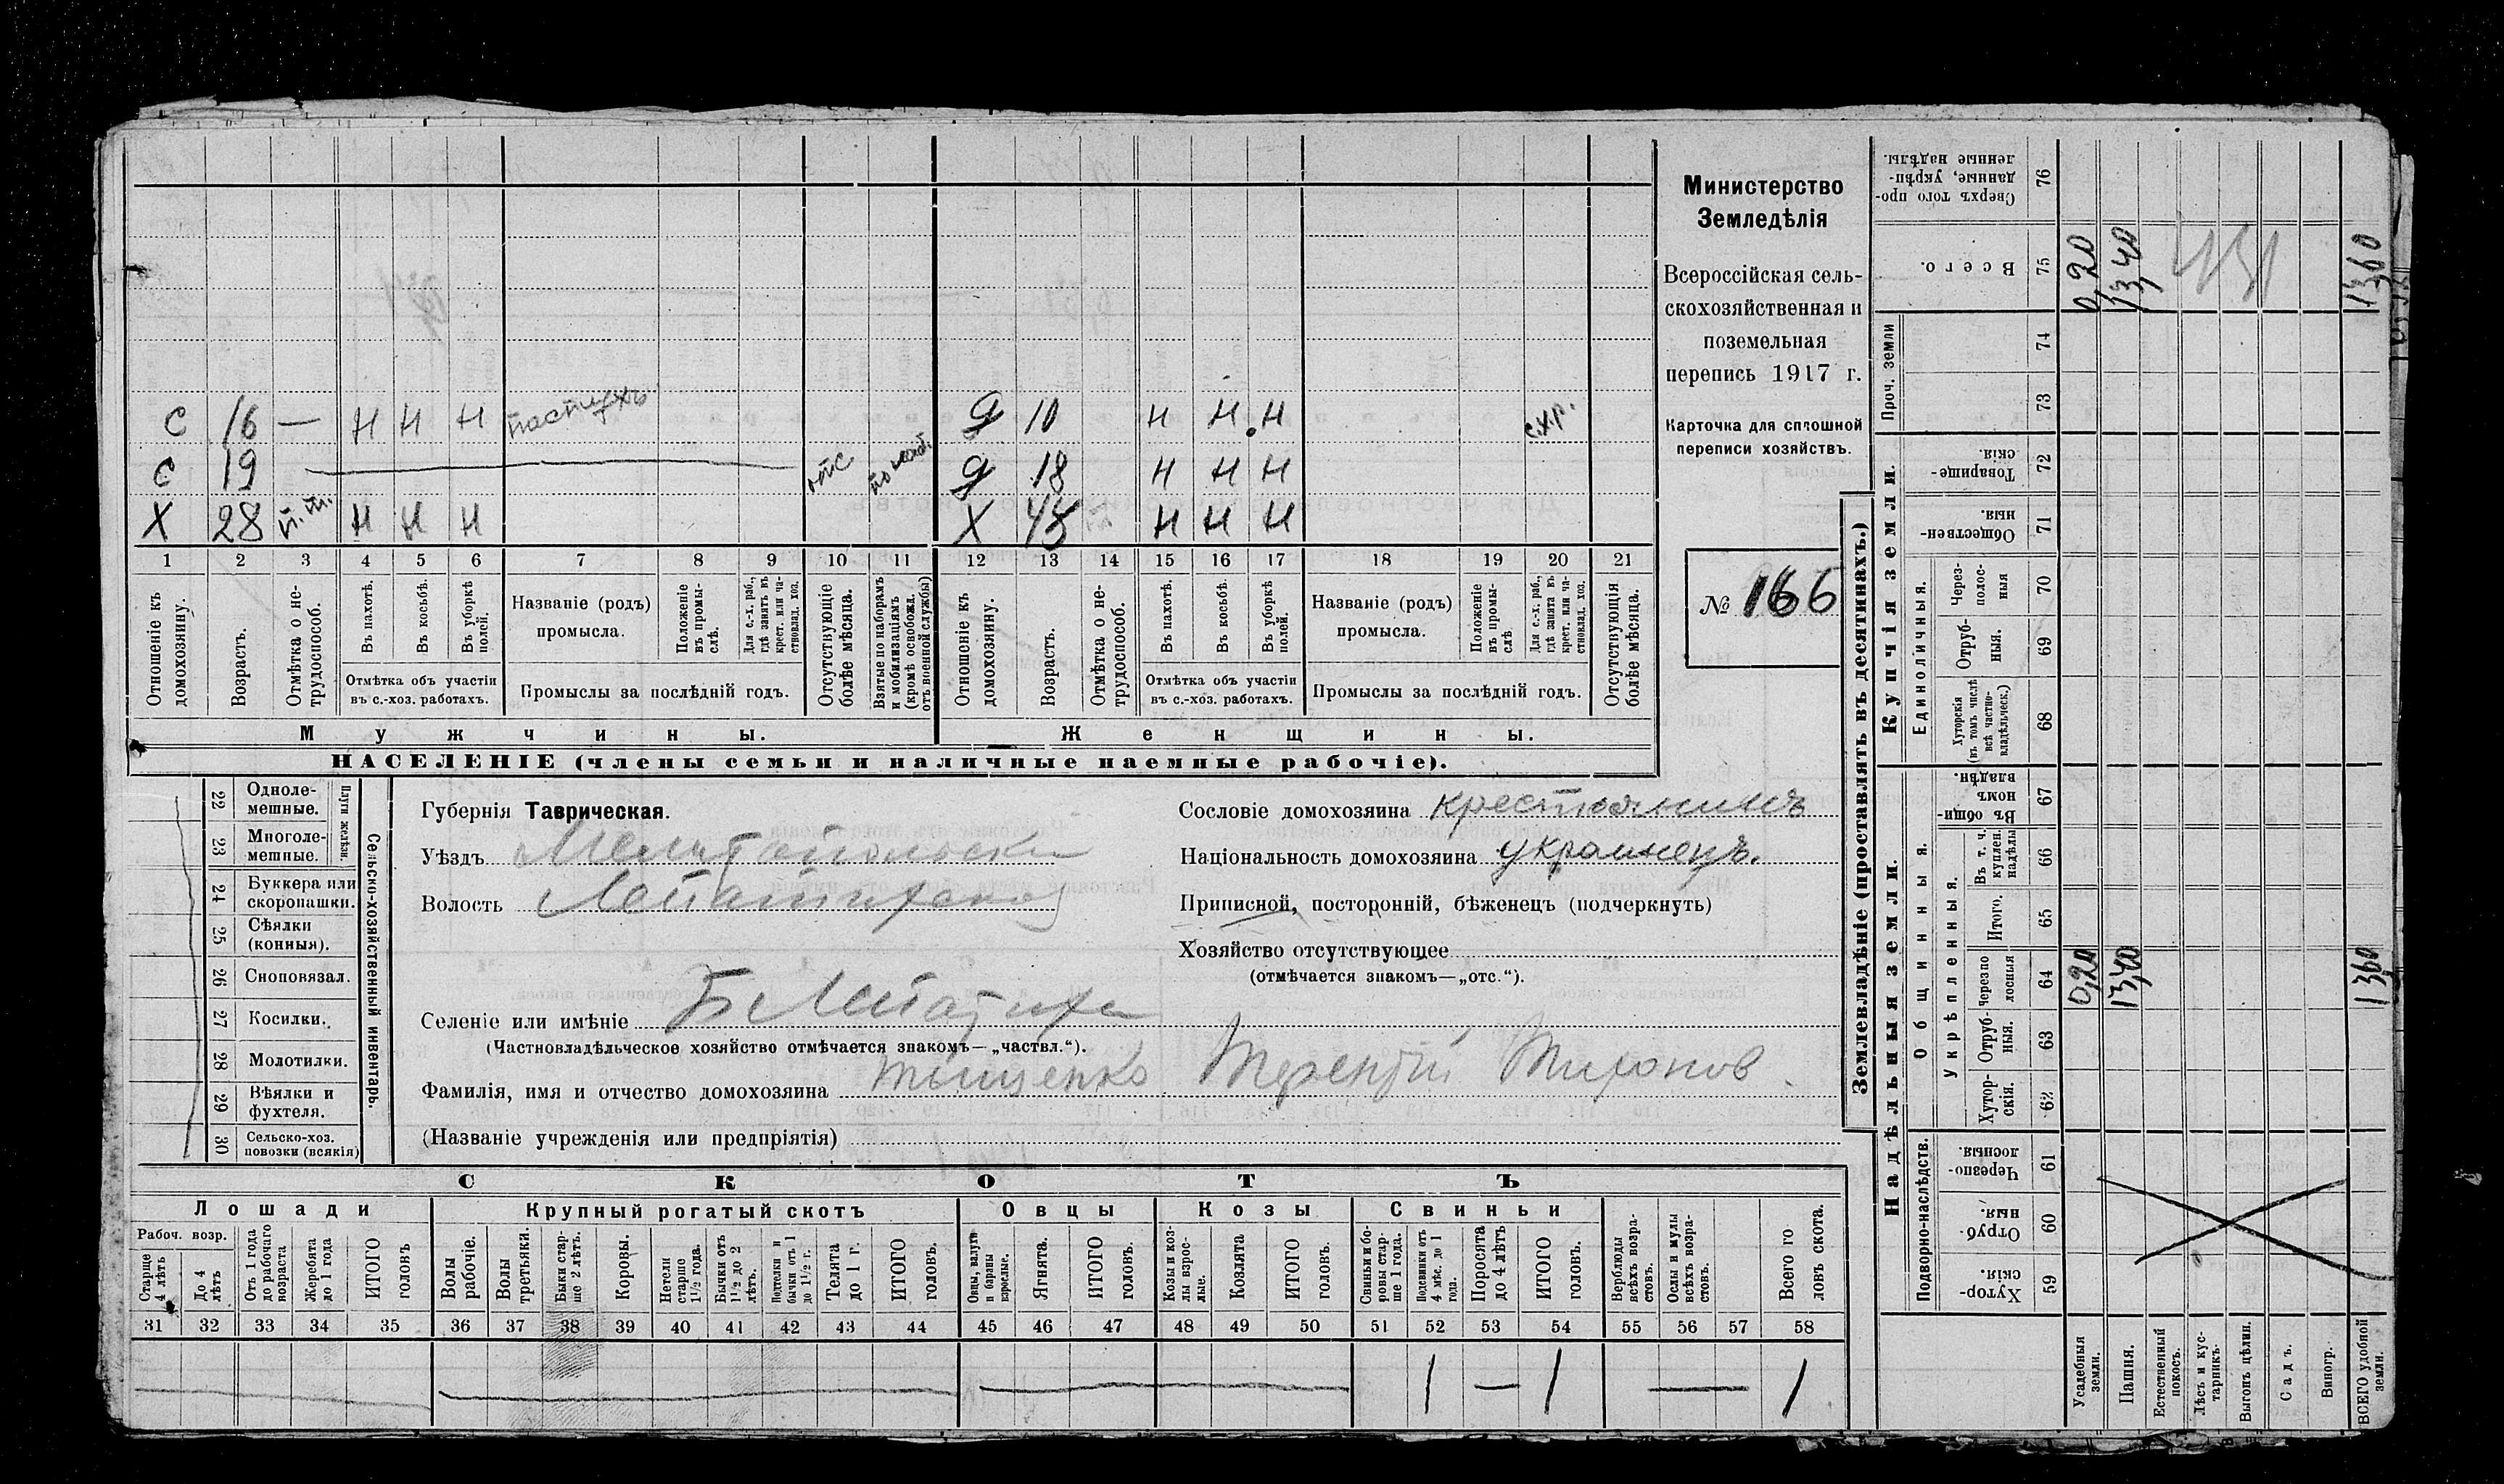 С 16 — Н Н Н пастухъ Д 10 Н Н Н с.х.р.
С 19 отс по моб. Д 18 Н Н Н
Х 28 п.т. Н Н Н Х 48 Н Н Н
1 2 3 4 5 6 7 8 9 10 11 12 13 14 15 16 17 18 19 20 21
Отношеніе къ домохозяину.
Возрастъ.
Отмѣтка о не-трудоспособ.
Въ пахотѣ.
Въ косьбѣ.
Въ уборкѣ полей.
Отмѣтка объ участіи
въ с.-хоз. работахъ.
Названіе (родъ)
промысла.
Положеніе въ промы-слѣ.
Для с.-х. раб., гдѣ занятъ въ крест. или ча-стновлад. хоз.
Промыслы за послѣдній годъ.
Отсутствующіе болѣе мѣсяца.
Взятые по наборамъ и мобилизаціямъ (кромѣ освобожд. отъ военной службы)
Отношеніе къ домохозяину.
Возрастъ.
Отмѣтка о не-трудоспособ.
Въ пахотѣ.
Въ косьбѣ.
Въ уборкѣ полей.
Отмѣтка объ участіи
въ с.-хоз. работахъ.
Названіе (родъ)
промысла.
Положеніе въ промы-слѣ
Для с.-х. раб., гдѣ занята въ крест. или ча-стновлад. хоз.
Промыслы за послѣдній годъ.
Отсутствующія болѣе мѣсяца.
Мужчины. Женщины.
НАСЕЛЕНІЕ (члены семьи и наличные наемные рабочіе).
Министерство
Земледѣлія
Всероссійская сель-
скохозяйственная и
поземельная
перепись 1917 г.
Карточка для сплошной
переписи хозяйствъ.
№ 166
22 Одноле-мешные.
23 Многоле-мешные.
Плуги желѣзн.
24 Буккера или скоропашки.
25 Сѣялки (конныя).
26 Сноповязал.
27 Косилки.
28 Молотилки.
29 Вѣялки и фухтеля.
30 Сельско-хоз. повозки (всякія)
Сельско-хозяйственный инвентарь.
Губернія Таврическая.
Уѣздъ Мелитопольски
Волость Лепатихской
Селеніе или имѣніе Б Лепатиха
(Частновладѣльческое хозяйство отмѣчается знакомъ—„частвл.“).
Фамилія, имя и отчество домохозяина Тыщенко Терентій Тихонов.
(Названіе учрежденія или предпріятія)
Сословіе домохозяина крестьянинъ
Національность домохозяина украинецъ.
Приписной, посторонній, бѣженецъ (подчеркнуть)
Хозяйство отсутствующее
(отмѣчается знакомъ—„отс.“).
СКОТЪ
Лошади Крупный рогатый скотъ Овцы Козы Свиньи
Рабоч. возр.
Старше 4 лѣтъ
До 4 лѣтъ
Отъ 1 года до рабочаго возраста
Жеребята до 1 года
ИТОГО головъ
Волы рабочіе.
Волы третьяки.
Быки стар-ше 2 лѣтъ.
Коровы.
Нетели старше 1½ года.
Бычки отъ 1½ до 2 лѣтъ.
Нетелки и бычки отъ 1 до 1½ г.
Телята до 1 г.
ИТОГО головъ.
Овцы, валухи и бараны взрослые.
Ягнята.
ИТОГО головъ.
Козы и коз-лы взрос-лые.
Козлята
ИТОГО головъ.
Свиньи и бо-ровы стар-ше 1 года.
Подсвинки отъ 4 мѣс. до 1 года.
Поросята до 4 лѣтъ
ИТОГО головъ.
Верблюды всѣхъ возра-стовъ.
Ослы и мулы всѣхъ возра-стовъ.
Всего го ловъ скота.
31 32 33 34 35 36 37 38 39 40 41 42 43 44 45 46 47 48 49 50 51 52 53 54 55 56 57 58
1 — 1 — 1
Землевладѣніе (проставлять въ десятинахъ.)
Надѣльныя земли. Купчія земли. Проч. земли
Подворно-наслѣдств. Общинныя. Укрѣпленныя. Единоличныя.
Сверхъ того про-данные, укрѣп-ленные надѣлы. 76
Всего. 75 0,20 13,40 13,60
74
73
Товарище-скія. 72
Обществен-ныя. 71
Через-полос-ныя 70
Отруб-ныя. 69
Хуторскія (въ томъ числѣ всѣ частно-владѣльческ.) 68
Въ общи-номъ владѣн. 67
Въ т. ч. куплен. надѣлы 66
Итого. 65
Черезпо лосныя 64 0,20 13,40 13,60
Отруб-ныя. 63
Хутор-скія. 62
Черезпо-лосныя. 61
Отруб-ныя. 60
Хутор-скія. 59
Усадебныя земли.
Пашня.
Естественный покосъ.
Лѣсъ и кус-тарникъ.
Выгонъ цѣлин.
Садъ.
Виногр.
ВСЕГО удобной земли.